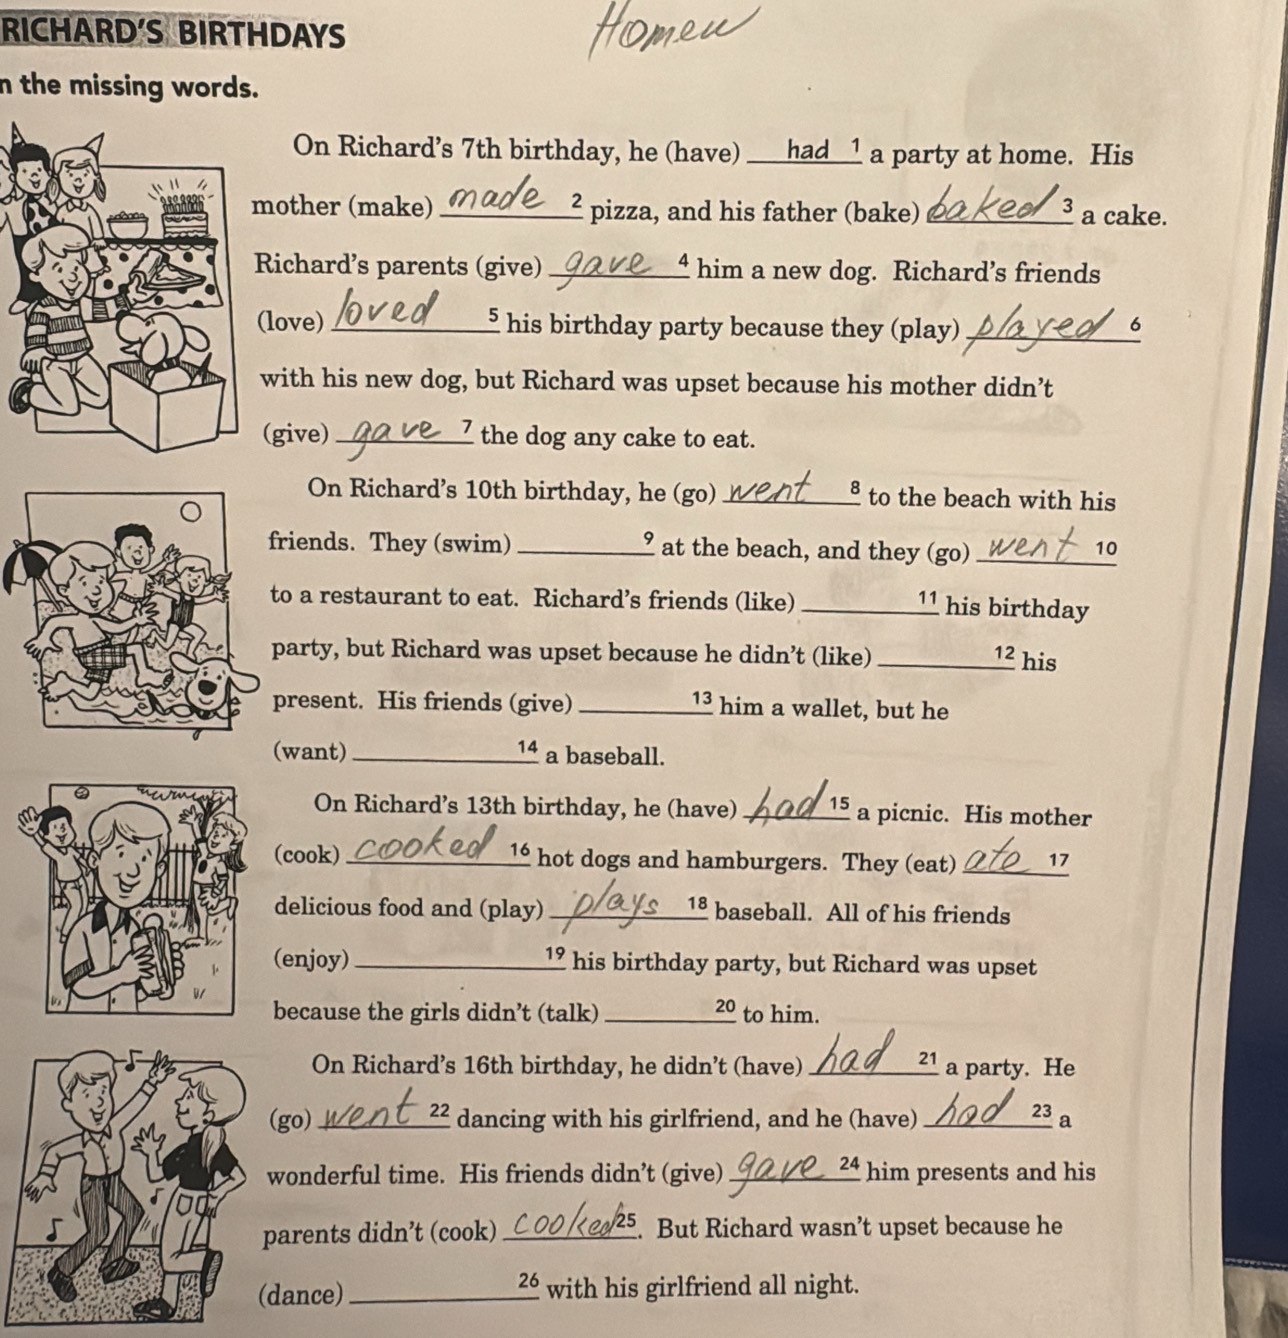 RICHARD'S BIRTHDAYS
Homew
n the missing words.
On Richard's 7th birthday, he (have) had 1 a party at home. His
mother (make) made 2 pizza, and his father (bake) baked 3 a cake.
Richard's parents (give) gave 4 him a new dog. Richard's friends
(love) loved 5 his birthday party because they (play) played 6
with his new dog, but Richard was upset because his mother didn't
(give) gave 7 the dog any cake to eat.
On Richard's 10th birthday, he (go) went 8 to the beach with his
friends. They (swim) ________ 9 at the beach, and they (go) went 10
to a restaurant to eat. Richard's friends (like) ________ 11 his birthday
party, but Richard was upset because he didn't (like) ________ 12 his
present. His friends (give) ________ 13 him a wallet, but he
(want) ________ 14 a baseball.
On Richard's 13th birthday, he (have) had 15 a picnic. His mother
(cook) cooked 16 hot dogs and hamburgers. They (eat) ate 17
delicious food and (play) plays 18 baseball. All of his friends
(enjoy) ________ 19 his birthday party, but Richard was upset
because the girls didn't (talk) ________ 20 to him.
On Richard's 16th birthday, he didn't (have) had 21 a party. He
(go) went 22 dancing with his girlfriend, and he (have) had 23 a
wonderful time. His friends didn't (give) gave 24 him presents and his
parents didn't (cook) cooked 25. But Richard wasn't upset because he
(dance) ________ 26 with his girlfriend all night.